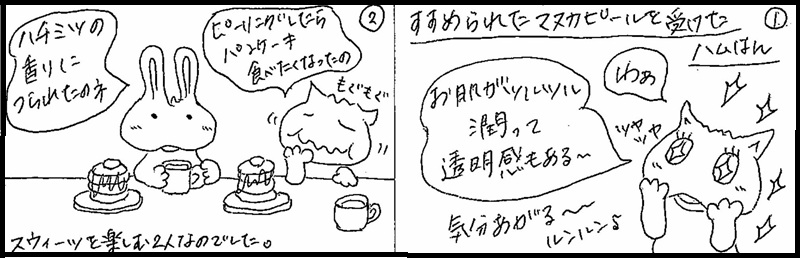 ①
すすめられたマヌカピールを受けた
ハムはん
わぁ
お肌がツルツル
潤って
透明感もある〜
ツヤ
ツヤ
気分あがる〜〜
ルンルン♪
②
ピーリングしたら
パンケーキ
食べたくなったの
もぐもぐ
ハチミツの
香りに
つられたのネ
スウィーツを楽しむ2人なのでした。